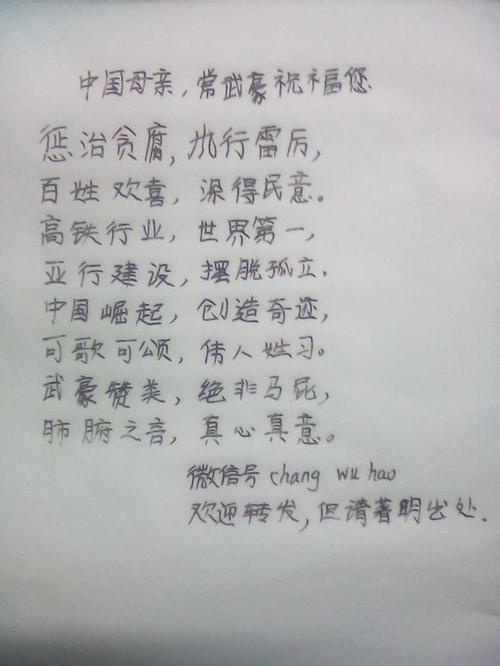 中国母亲，常武豪祝福您
惩治贪腐，九行雷厉，
百姓欢喜，深得民意。
高铁行业，世界第一，
亚行建设，摆脱孤立。
中国崛起，创造奇迹，
可歌可颂，伟人姓习。
武豪赞美，绝非马屁，
肺腑之音，真心真意。
微信号 chang wu hao
欢迎转发，但请著明出处.